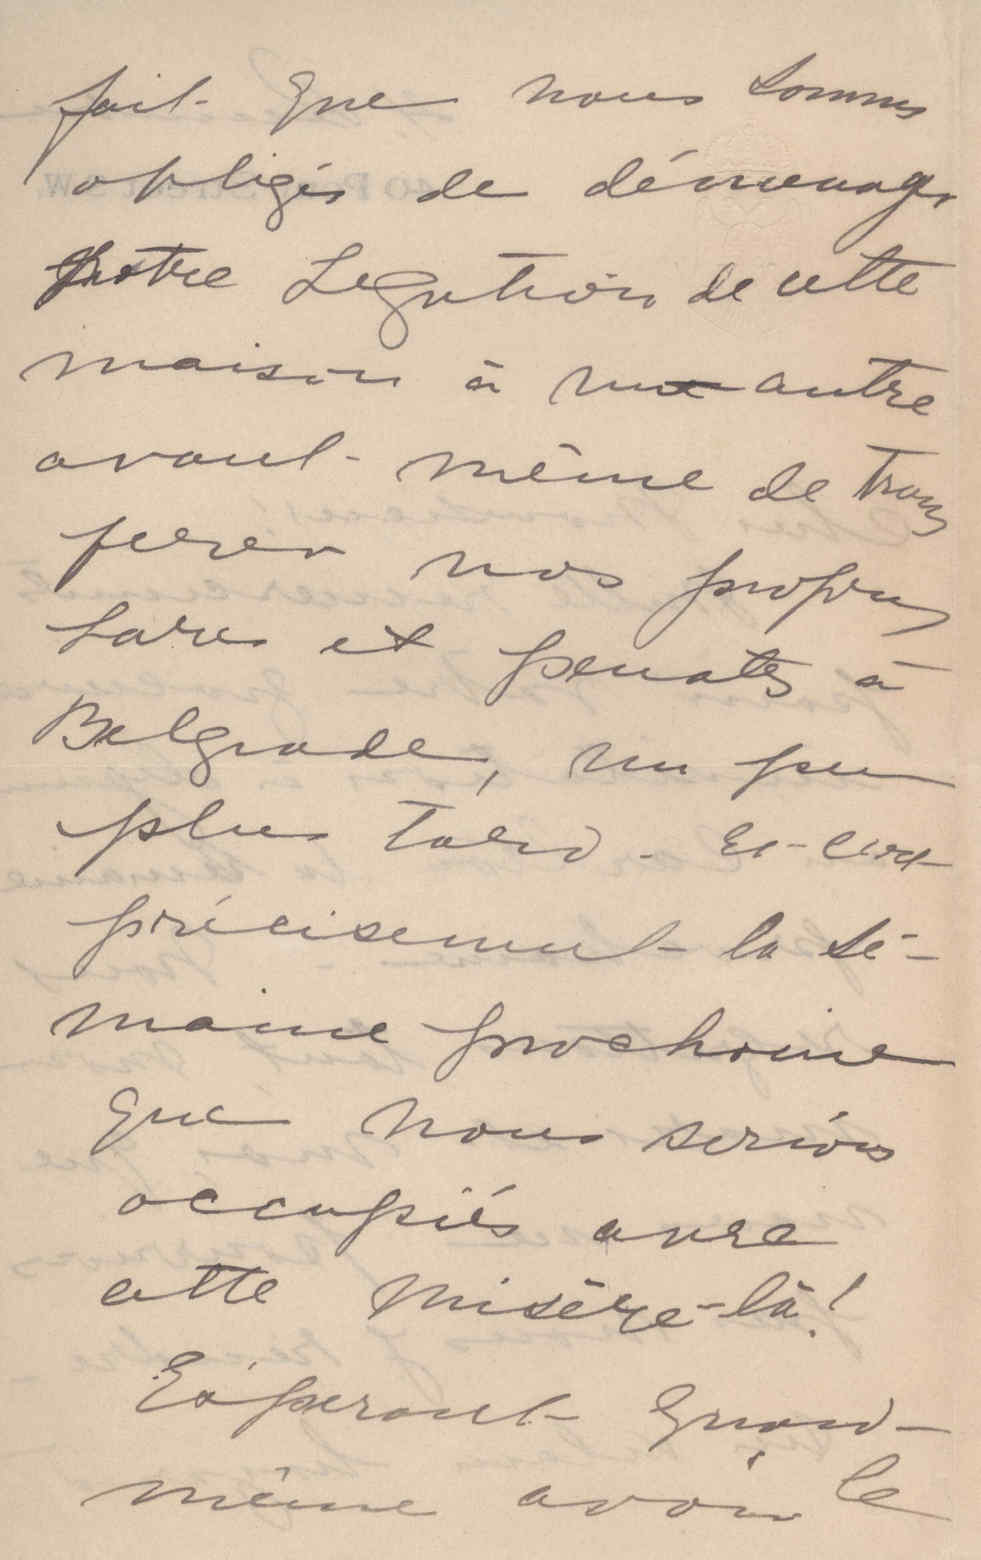 fait que nous sommes
obligés de démenager
notre Legation de cette
maison à une autre
avant même de trans
ferer nos propres
Lares et penates à
Belgrade, un peu
plus tard. Et c'est
précisement la se-
maine prochaine
que nous serions
occupiés avec
cette misère-là!
Esperant quand-
même avoir le